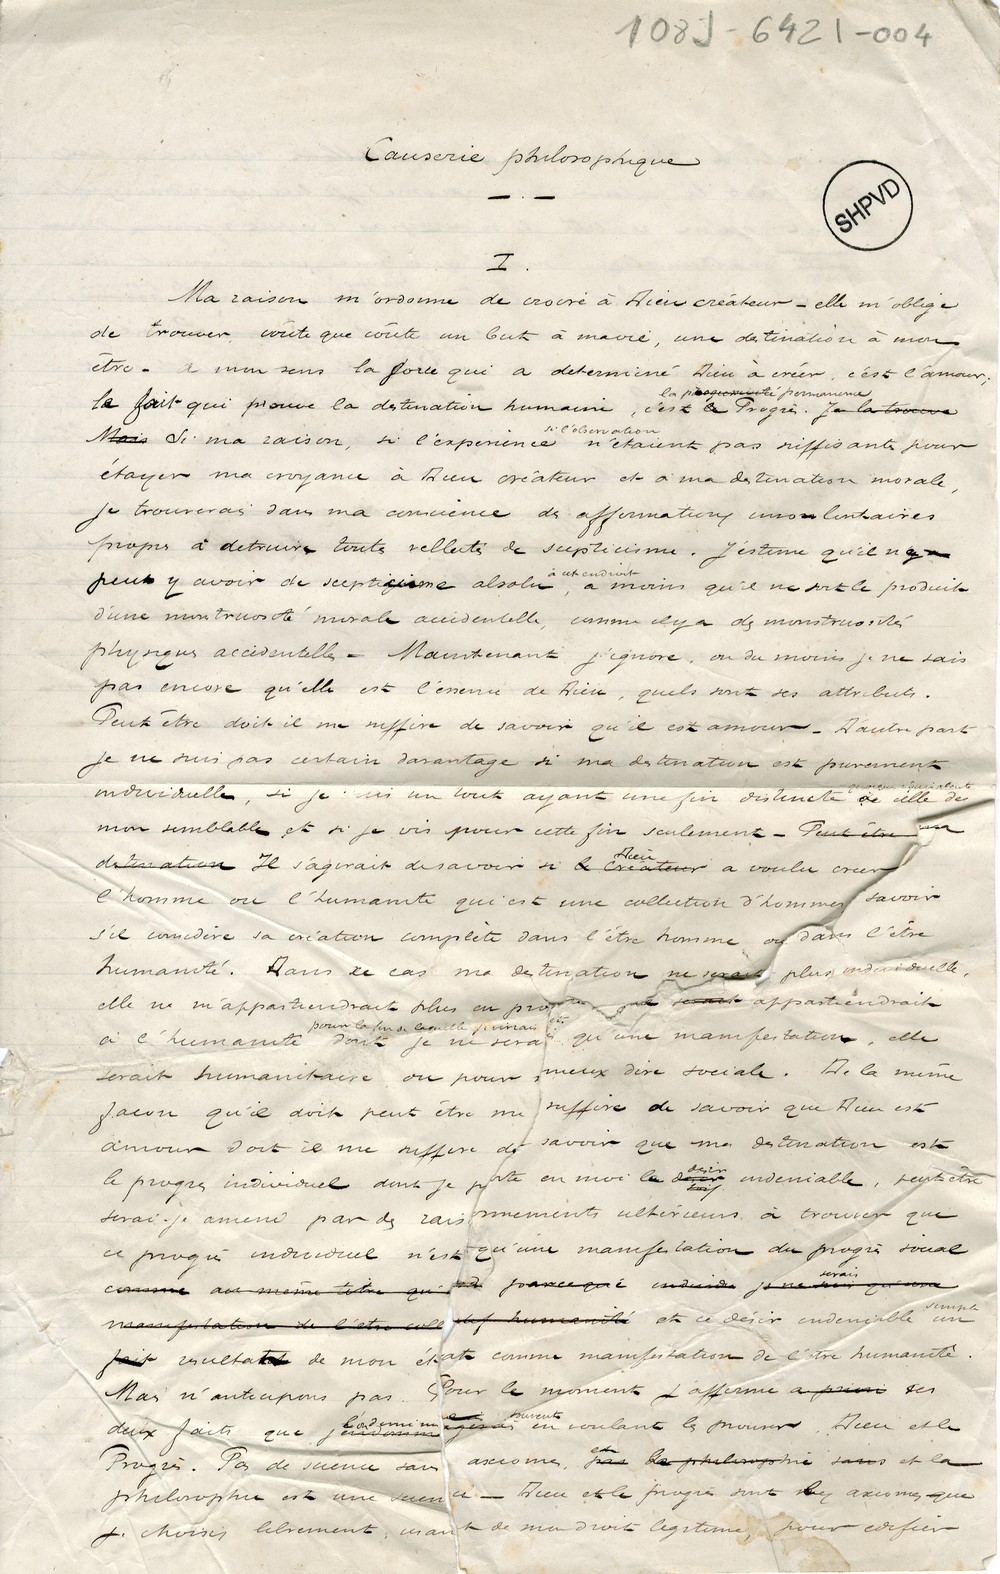 108J-6421-004
Causerie philosophique
SHPVD
I.
Ma raison m'ordonne de croire à Dieu créateur - elle m'oblige
de trouver, coûte que coûte un but à ma vie, une destination à mon
être - à mon sens la force qui a déterminé Dieu à créer, c'est l'amour;
la progressivité permanence
le fait qui prouve la destination humaine, c'est le Progrès. Je la trouve
Mais Si ma raison, si l'expérience si l'observation n'étaient pas suffisants pour
étayer ma croyance à Dieu créateur et à ma destination morale,
je trouverai dans ma conscience des affirmations involontaires
propres à detruire toute velleité de scepticisme. J'estime qu'il n'y a
peut y avoir de scepticisme absolu à cet endroit, à moins qu'il ne soit le produit
d'une monstruosité morale accidentelle, comme il y a des monstruosités
physiques accidentelles - Maintenant j'ignore, ou du moins je ne sais
pas encore qu'elle est l'essence de Dieu, quels sont ses attributs.
Peut être doit il me suffire de savoir qu'il est amour - D'autre part
je ne suis pas certain davantage si ma destination est purement
individuelle, si je suis un tout ayant une fin distincte de celle de
mon semblable et si je vis pour cette fin seulement - Peut être
destination Il s'agirait de savoir si le Créateur Dieu a voulu créer
l'homme ou l'humanité qui est une collection d'hommes savoir
s'il considère sa création complète dans l'être homme ou dans l'être
humanité. Dans ce cas ma destination ne serait plus individuelle,
elle ne m'appartiendrait plus en propre serait appartiendrait
pour la fin de laquelle j'aurais été
à l'humanité dont je ne serai qu'une manifestation, elle
serait humanitaire ou pour mieux dire sociale. De la même
façon qu'il doit peut être me suffire de savoir que Dieu est
amour doit il me suffire de savoir que ma destination est
le progrès individuel dont je porte en moi le désir indeniable, peut être
serai-je amené par des raisonnements ultérieurs à trouver que
ce progrès individuel n'est qu'une manifestation du progrès social
comme au même titre parceque individu je ne serais qu'une
manifestation de l'être collectif humanité et ce désir indeniable un simple
fait resultat de mon état comme manifestation de l'être humanité.
Mais n'anticipons pas. Pour le moment j'affirme a priori ces
deux faits que en voulant les prouver, Dieu et le
Progrès. Pas de science sans axiomes, et la philosophie sans et la
philosophie est une science - Dieu et le progrès sont les axiomes que
je choisis librement, usant de mon droit legitime, pour edifier